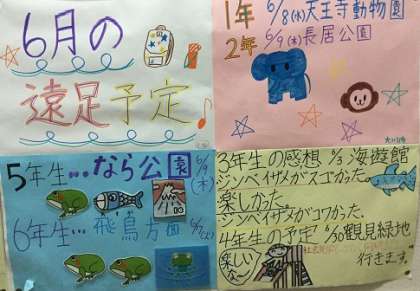 6月の
遠足予定
1年 6/8(水)天王寺動物園
2年 6/9(木)長居公園
5年生…なら公園 6/9(木)
6年生…飛鳥方面 6/7(火)
3年生の感想 6/3 海遊館
ジンベイザメがスゴかった。
楽しかった。
ジンベイザメがコワかった。
4年生の予定 6/30鶴見緑地
行きます。
楽しいな〜